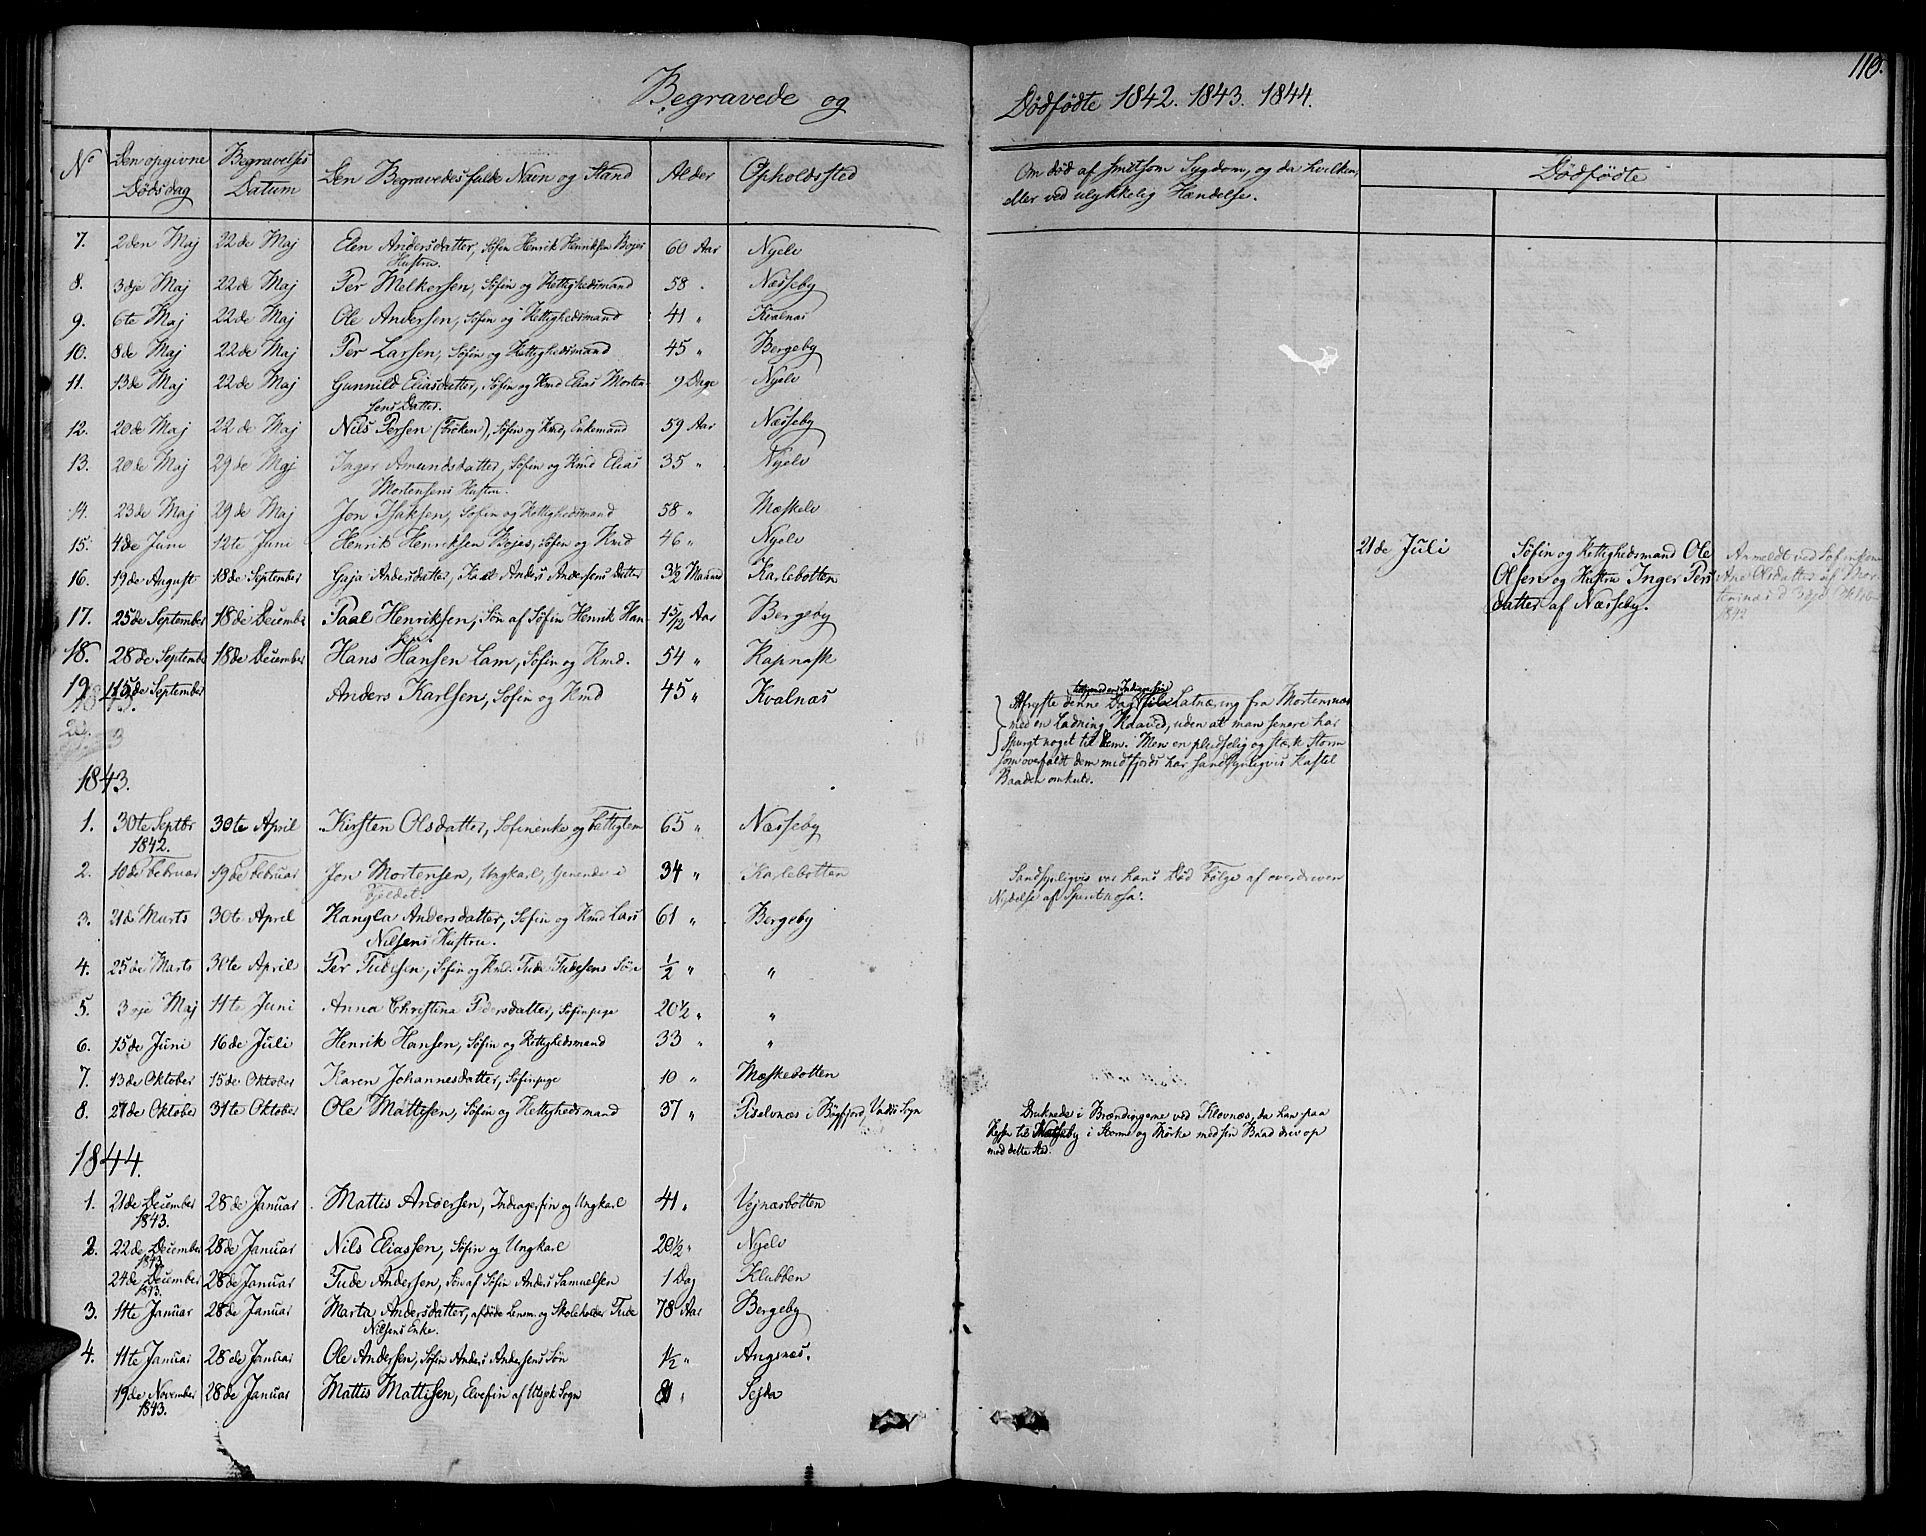 110.
Begravede og Dødfødte 1842. 1843. 1844.
No | Den opgivne Dødsdag | Begravelses Datum | Den Begravedes fulde Navn og Stand | Alder | Opholdsted | Om død af smitsom Sygdom, og da hvilken, eller ved ulykkelig Hændelse. | Dødfødte
7. 2den Maj 22de Maj Elen Andersdatter, Søfin Henrik Henriksen Bojes 60 Aar Nyelv
Hustru.
8. 3dje Maj 22de Maj Per Melkersen, Søfin og Rettighedsmand 58 " Næsseby
9. 6te Maj 22de Maj Ole Andersen, Søfin og Rettighedsmand 41 " Kvalnæs
10. 8de Maj 22de Maj Per Larsen, Søfin og Rettighedsmand 45 " Bergeby
11. 13de Maj 22de Maj Gunnild Eliasdatter, Søfin og Rmd Elias Morten- 9 Dage Nyelv
sens Datter.
12. 20de Maj 22de Maj Nils Persen (Frøken), Søfin og Rmd, Enkemand 59 Aar Næsseby
13. 20de Maj 29de Maj Inger Amundsdatter, Søfin og Rmd Elias 35 " Nyelv
Mortensens Hustru.
14. 23de Maj 29de Maj Jon Isaksen, Søfin og Rettighedsmand 58 " Mæskelv
15. 4de Juni 12te Juni Henrik Henriksen Bojes, Søfin og Rmd 46 " Nyelv
21de Juli Søfin og Rettighedsmand Ole
Olsen og Hustru Inger Pers
datter af Næsseby.
Anmeldt ved Søfinkone
Ane Olsdatter af
3dje Oktober
1842
16. 19de August 18de September Gaja Andersdatter, Anders Andersens Datter 3½ Maaned Karlebotten
17. 25de September 18de December Paal Henriksen, Søn af Søfin Henrik Han- 1 5/12 Aar Bergeby
sen.
18. 28de September 18de December Hans Hansen Lam, Søfin og Rmd. 54 " Kapnask
19. 15de September Anders Karlsen, Søfin og Rmd 45 " Kvalnæs
Afrejste denne Dag til Latnæring fra Mortensnæs
med en Ladning Raaved, uden at man senere har
spurgt noget til dem. Men en pludselig og stærk Storm
som overfaldt dem midtfjords har sandsynligvis kastet
Baaden omkuld.
20.
1843.
1. 30te Septbr 30te April Kirsten Olsdatter, Søfinenke og Fattiglem 65 " Næsseby
1842.
2. 10de Februar 19de Februar Jon Mortensen, Ungkarl, tjenende i 34 " Karlebotten
Fjeldet.
Sandsynligvis var hans Død Følge af overdreven
Nydelse af Spirituosa.
3. 21de Marts 30te April Kangla Andersdatter, Søfin og Rmd Lars 61 " Bergeby
Nilsens Hustru.
4. 25de Marts 30te April Per Tudesen, Søfin og Rmd. Tude Tudesens Søn ½ " "
5. 3dje Maj 11te Juni Anna Christina Pedersdatter, Søfinpige 20½ " "
6. 15de Juni 16de Juli Henrik Hansen, Søfin og Rettighedsmand 33 " "
7. 13de Oktober 15de Oktober Karen Johannesdatter, Søfinpige 10 " Mæskebotten
8. 27de Oktober 31te Oktober Ole Mattisen, Søfin og Rettighedsmand 37 " Piselvnæs i Bøgfjord, Vadsø Sogn
Druknede i Brændingerne ved Klovnæs, da han paa
Rejse til Næsseby i Storm og Mørke med sin Baad drev op
mod dette Sted.
1844.
1. 21de December 28de Januar Mattis Andersen, Indiagerfin og Ungkarl 41 " Vejnæsbotten
1843.
2. 22de December 28de Januar Nils Eliassen, Søfin og Ungkarl 20½ " Nyelv
1843.
24de December 28de Januar Tude Andersen, Søn af Søfin Anders Samuelsen 1 Dag Klubben
1843.
3. 11te Januar 28de Januar Marta Andersdatter, afdøde Lensm. og Skoleholder Tude 78 Aar Bergeby
Nilsens Enke.
4. 11te Januar 28de Januar Ole Andersen, Søfin Anders Andersens Søn 1½ " Angsnæs.
19de November 28de Januar Mattis Mattisen, Elvefin af Utsjok Sogn " Sejda
1843.